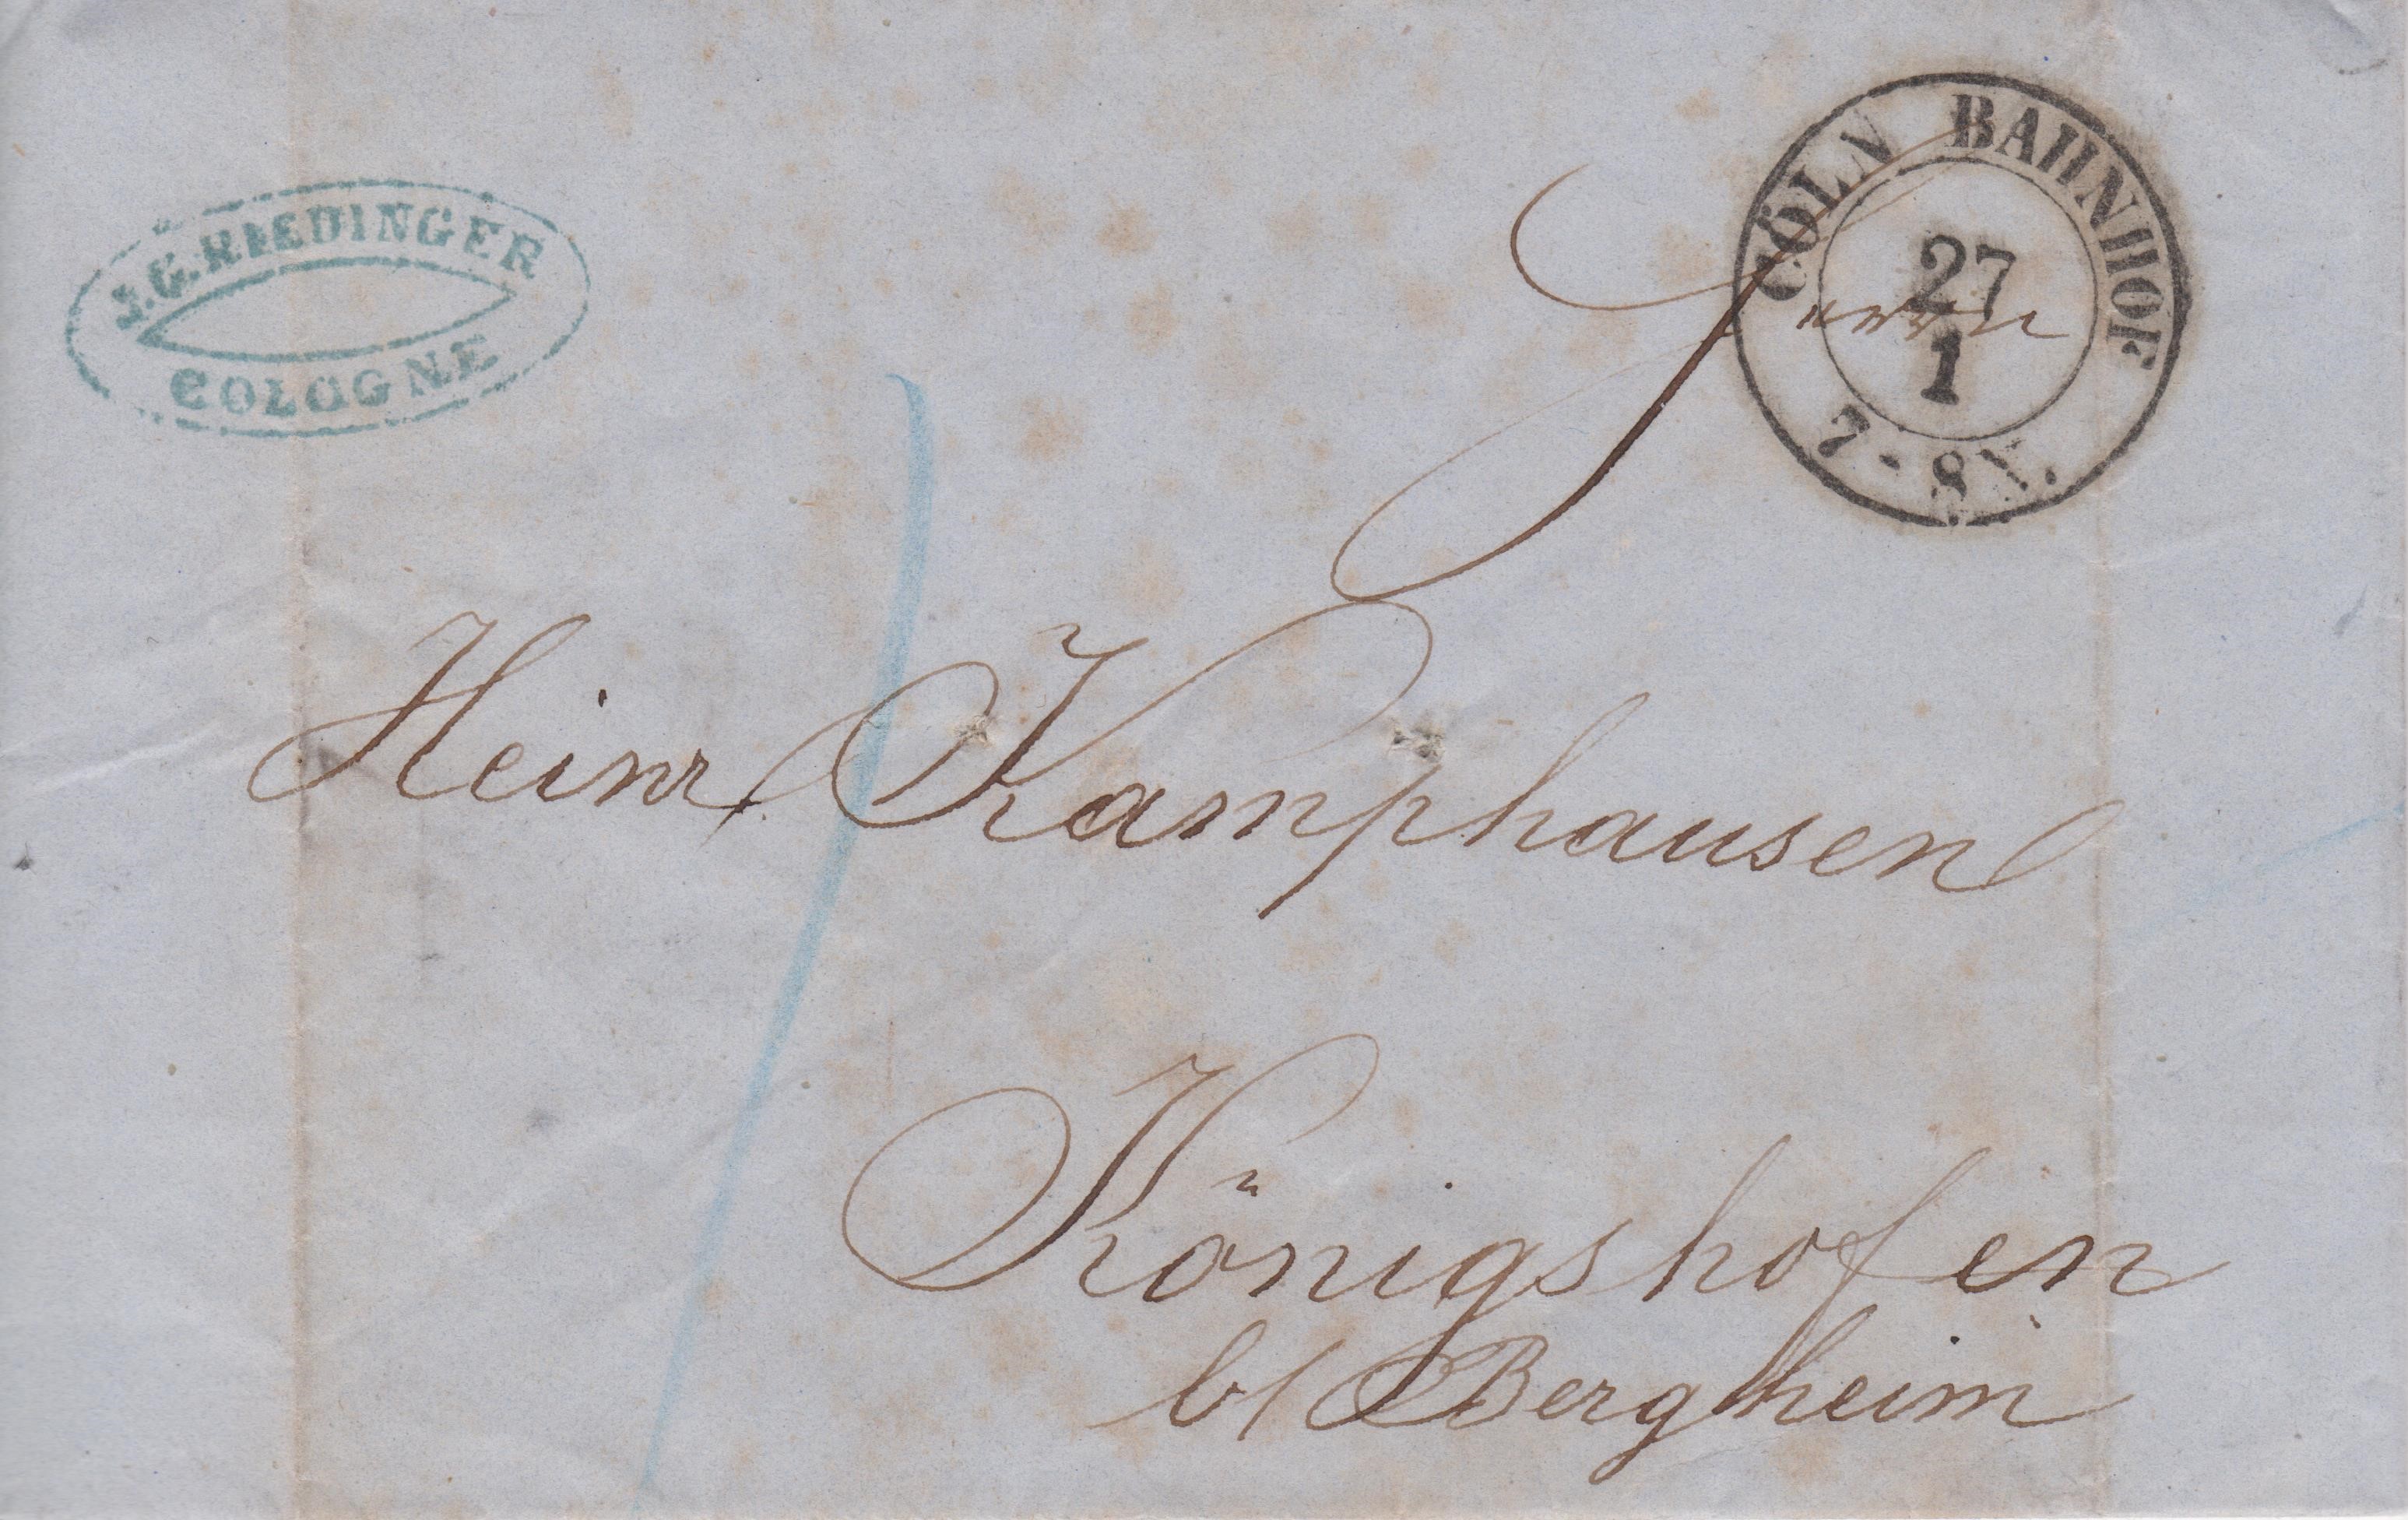 J. G. RIEDINGER
COLOGNE
CÖLN BAHNHOF
27
1
7 - 8
Herrn
Heinr. Kamphausen
Königshofen
b/ Bergheim